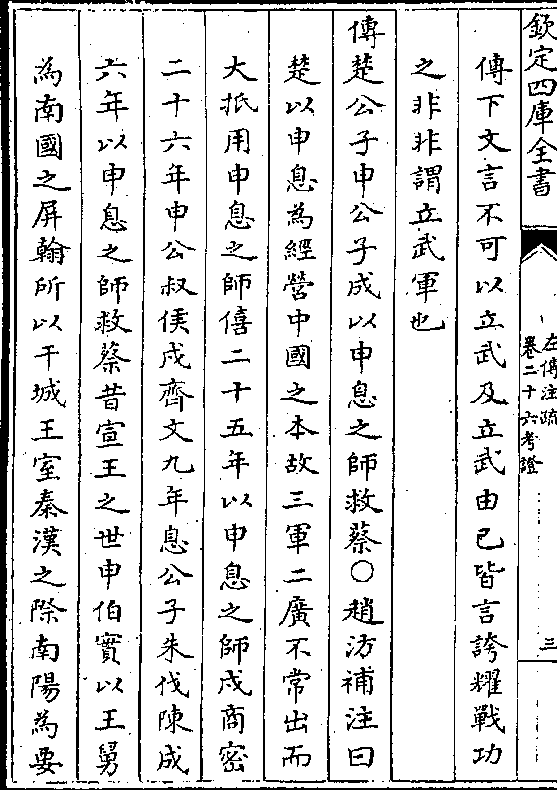 欽定四庫全書
左傳注疏
卷二十六考證
三
傳下文言不可以立武及立武由己皆言誇耀戰功
之非非謂立武軍也
傳楚公子申公子成以申息之師救蔡○趙汸補注曰
楚以申息為經營中國之本故三軍二廣不常出而
大抵用申息之師僖二十五年以申息之師戍商密
二十六年申公叔侯戍齊文九年息公子朱伐陳成
六年以申息之師救蔡昔宣王之世申伯實以王舅
為南國之屏翰所以干城王室秦漢之際南陽為要